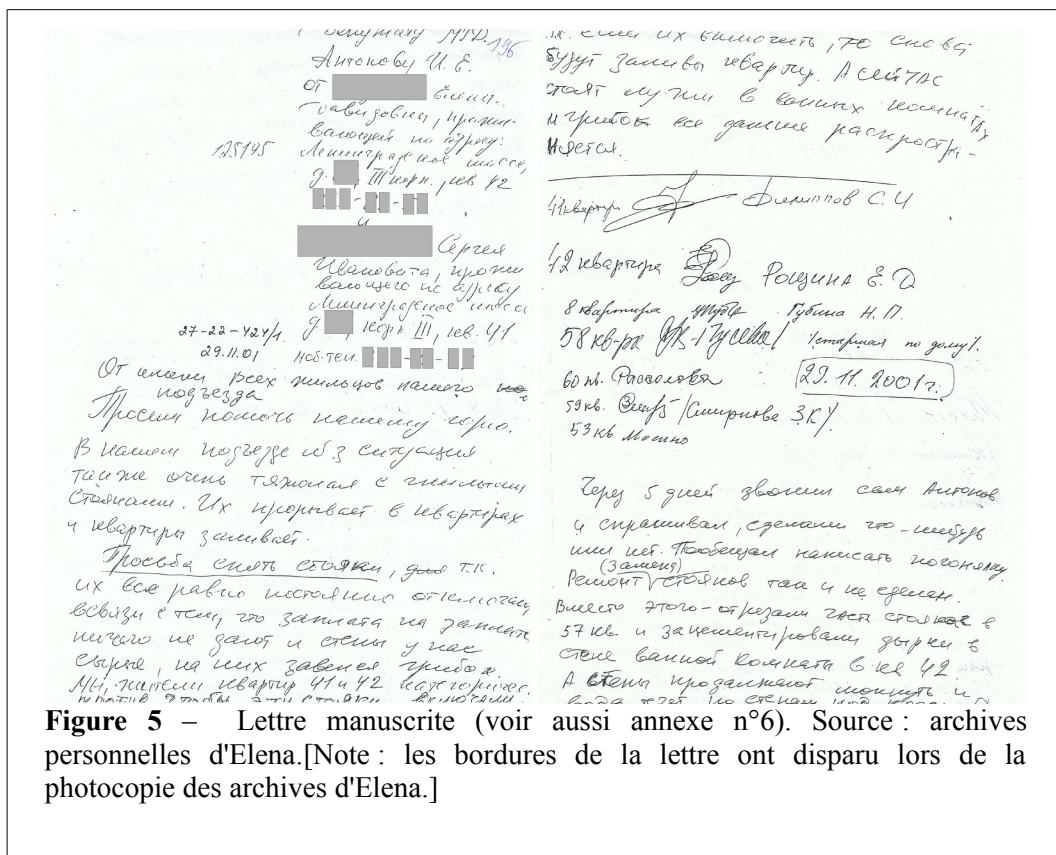 Депутату МГД
196
Антонову И. Е.
от Елены
Давидовны, прожи-
вающей по адресу:
125195
Ленинградское шоссе,
д. III корп., кв 42
и
Сергея
Ивановича, прожи
вающего по адресу
Ленинградское шоссе
д корп III, кв. 41.
27-22-424/1
29.11.01
моб.тел.
От имени всех жильцов нашего
подъезда
Просим помочь нашему горю.
В нашем подъезде № 3 ситуация
также очень тяжолая с гнилыми
стояками. Их прорывает в квартирах
и квартиры заливает.
Просьба снять стояки, т.к.
их все равно постоянно отключают,
всвязи с тем, что заплата на заплате
ничего не дают и стены у нас
сырые, на них завелся грибок.
Мы, жители квартир 41 и 42 категоричес.
против чтобы эти стояки включали
т.к. если их включить, то снова
будут заливы квартир. А сейчас
стоят лужи в ванных комнатах
и грибок все дальше распростра-
няется.
41 квартира Филиппов С. И
42 квартира Рощина Е. Д
8 квартира Губина Н. П.
58 кв-ра /Гусева/ /старшая по дому/.
60 кв. Рассолова
29.11.2001г.
59 кв. /Смирнова З К/
53 кв
Через 5 дней звонил сам Антонов
и спрашивал, сделали что-нибудь
или нет. Пообещал написать погонялку.
(Замена)
Ремонт стояков так и не сделан.
Вместо этого - отрезали часть стояков в
57 кв. и зацементировали дырки в
стене ванной комнаты в кв 42
А стены продолжают мокнуть и
вода течет по стенам
Figure 5 – Lettre manuscrite (voir aussi annexe n°6). Source : archives
personnelles d'Elena.[Note : les bordures de la lettre ont disparu lors de la
photocopie des archives d'Elena.]